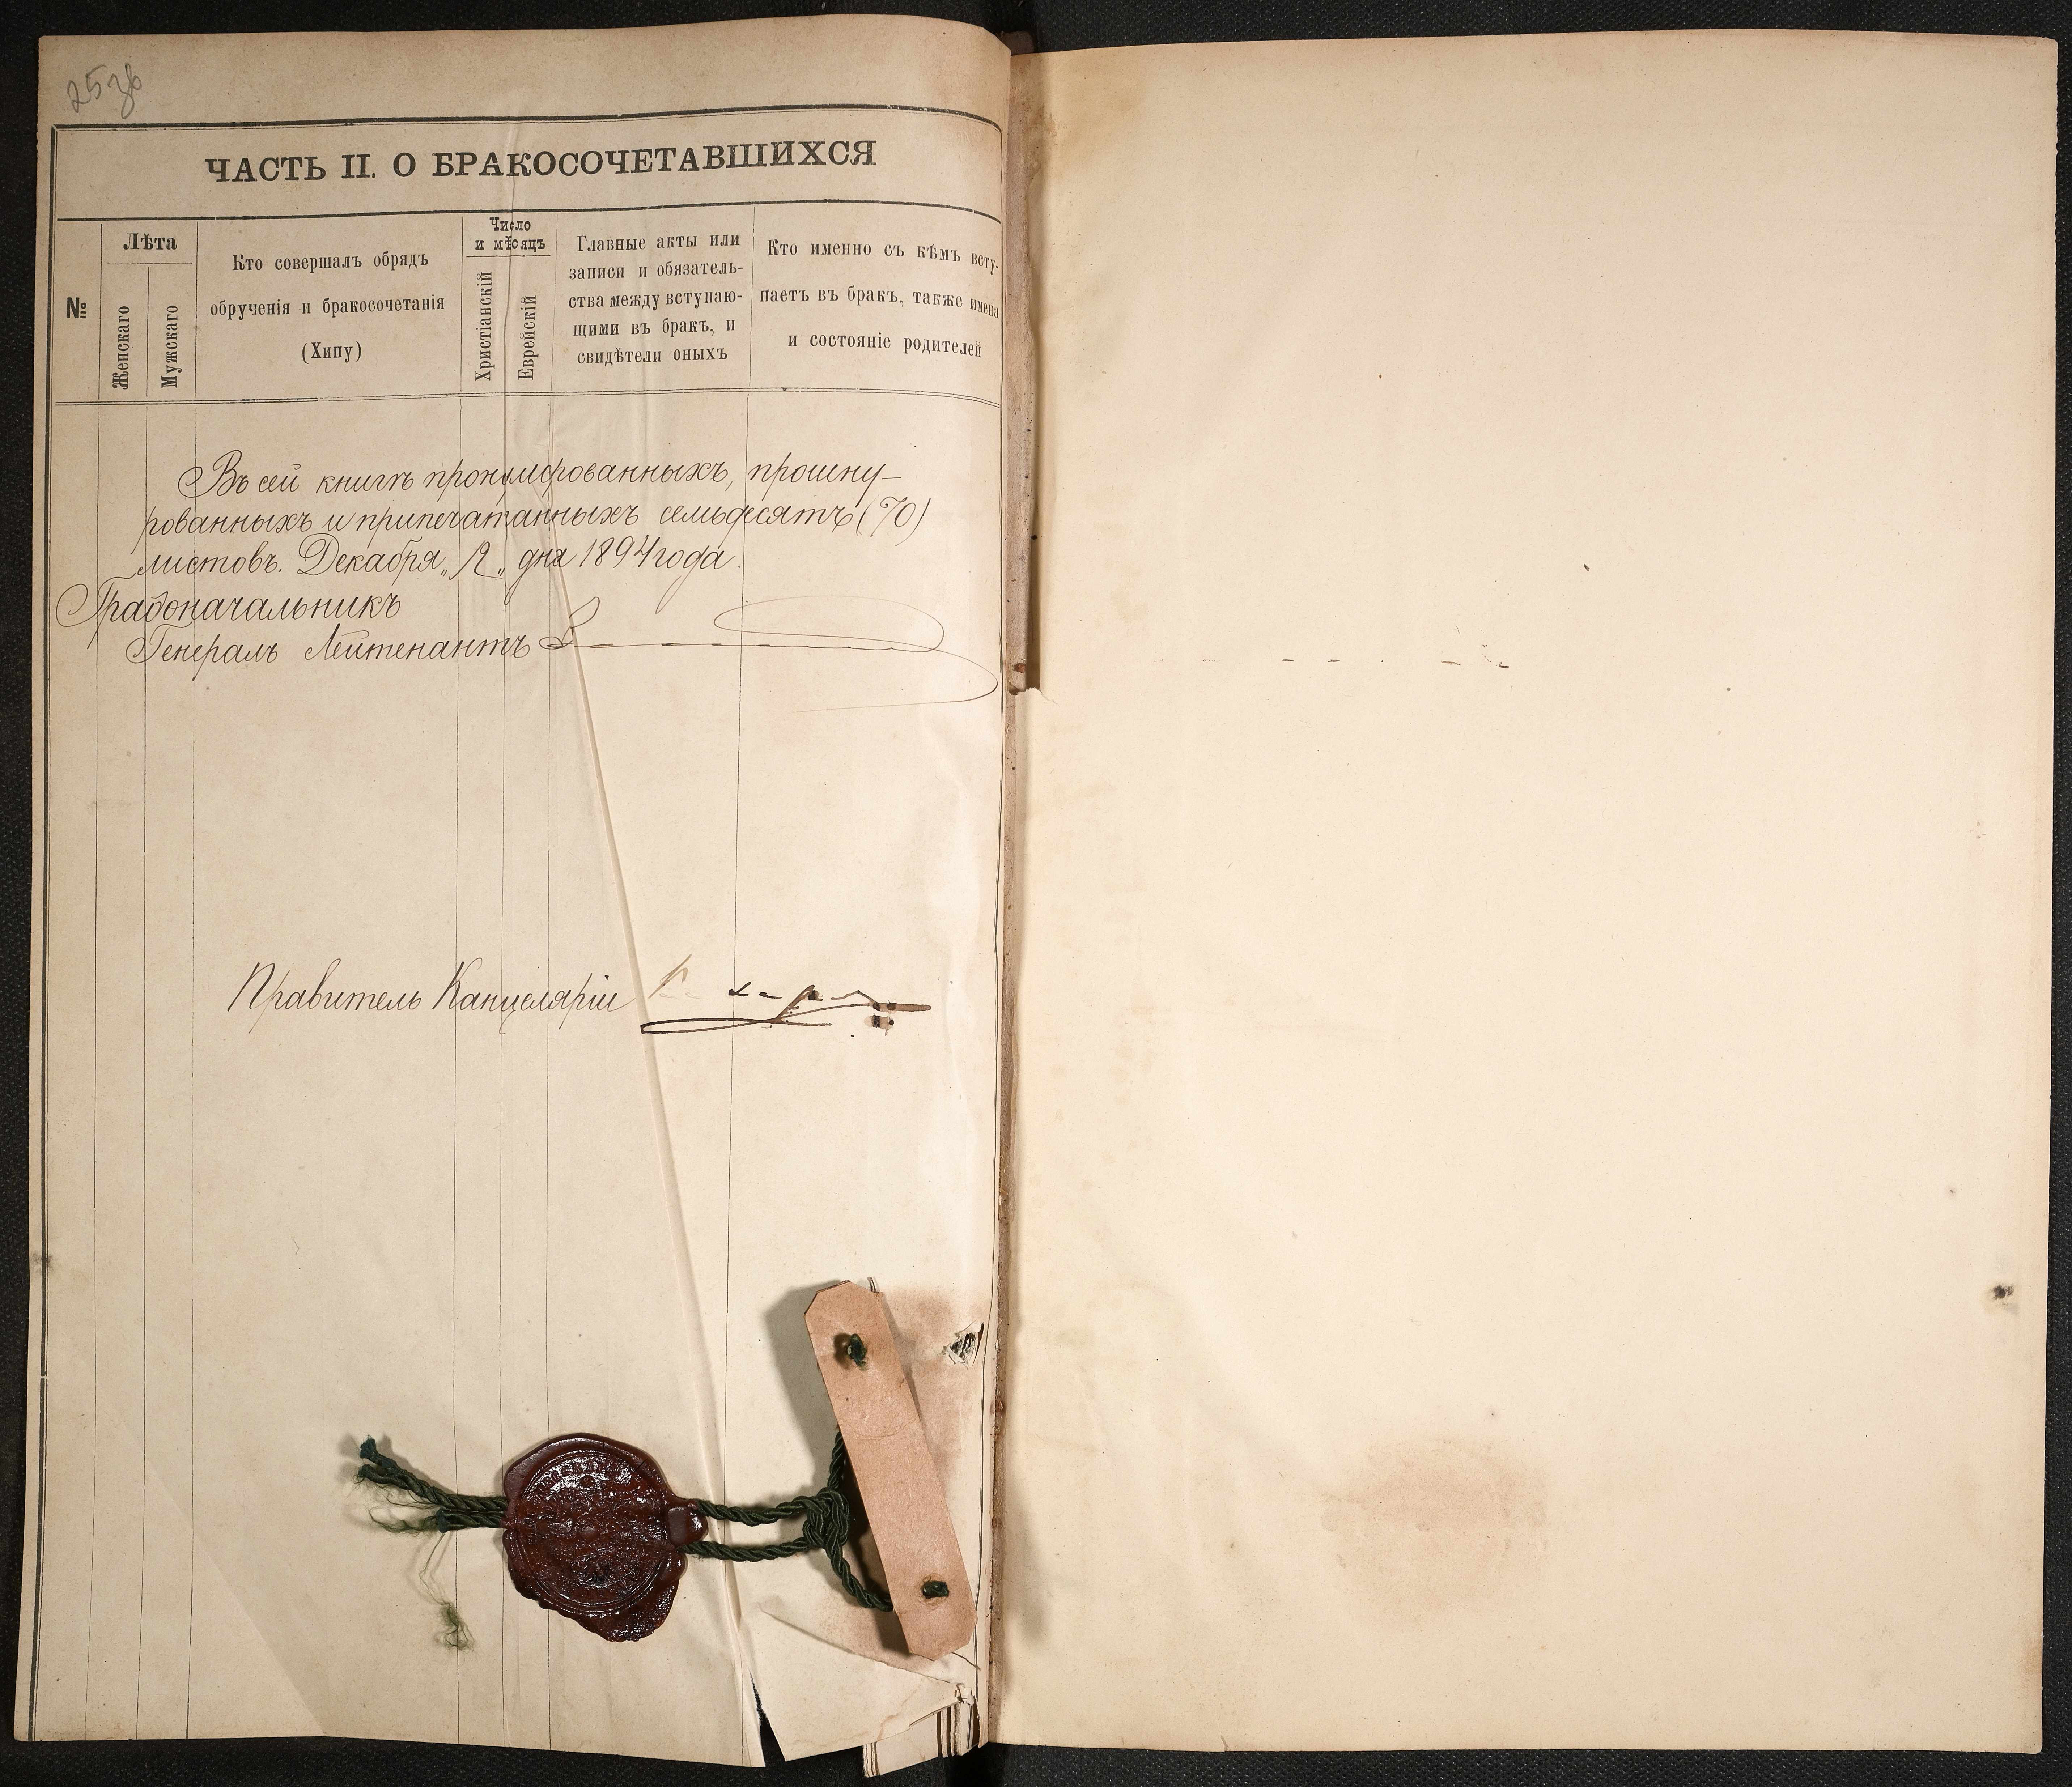 ЧАСТЬ II. О БРАКОСОЧЕТАВШИХСЯ
№
Лѣта
Женскаго
Мужскаго
Кто совершалъ обрядъ
обрученія и бракосочетанія
(Хипу)
Число
и мѣсяцъ
Христіанскій
Еврейскій
Главные акты или
записи и обязатель-
ства между вступаю-
щими въ бракъ, и
свидѣтели оныхъ
Кто именно съ кѣмъ всту-
паетъ въ бракъ, также имена
и состояніе родителей
Въ сей книгѣ пронумерованныхъ, прошну-
рованныхъ и припечатанныхъ семьдесятъ (70)
листовъ. Декабря дня 1894 года.
Градоначальникъ
Генералъ Лейтенантъ
Правитель Канцеляріи